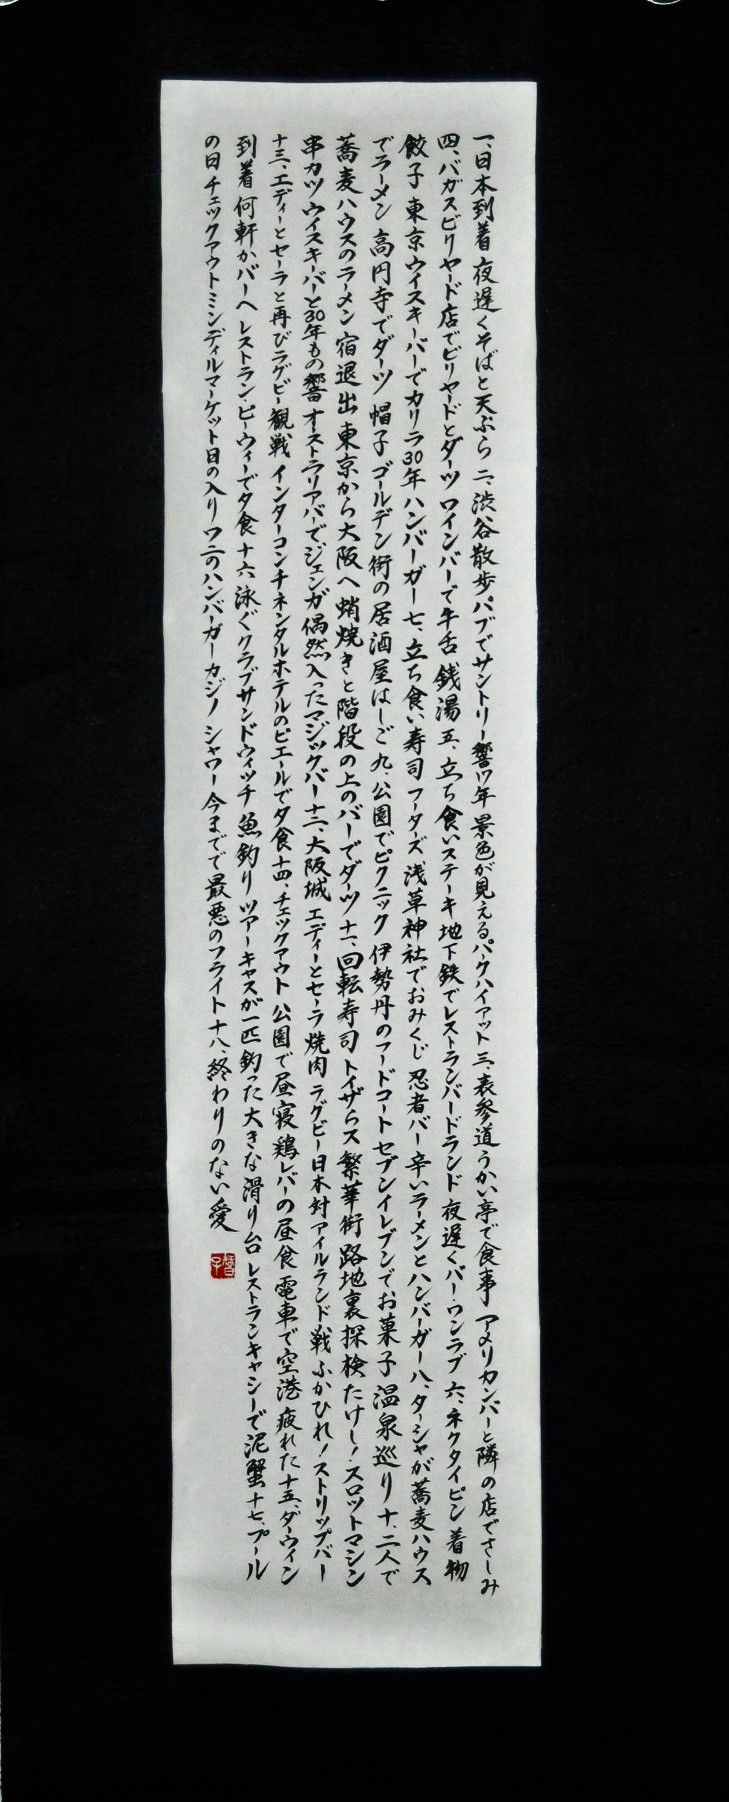 一、日本到着 夜遅くそばと天ぷら 二、渋谷散歩パブでサントリー響17年 景色が見えるパークハイアット 三、表参道うかい亭で食事 アメリカンバーと隣の店でさしみ
四、バガスビリヤード店でビリヤードとダーツ ワインバーで牛舌 銭湯 五、立ち食いステーキ 地下鉄でレストランバードランド 夜遅くバー・ワンラブ 六、ネクタイピン 着物
餃子 東京ウイスキーバーでカリラ30年 ハンバーガー 七、立ち食い寿司 フーターズ 浅草神社でおみくじ 忍者バー 辛いラーメンとハンバーガー 八、ターシャが蕎麦ハウス
でラーメン 高円寺でダーツ 帽子 ゴールデン街の居酒屋はしご 九、公園でピクニック 伊勢丹のフードコート セブンイレブンでお菓子 温泉巡り 十、二人で
蕎麦ハウスのラーメン 宿退出 東京から大阪へ 蛸焼きと階段の上のバーでダーツ 十一、回転寿司 トイザらス 繁華街路地裏探検 たけし！スロットマシン
串カツ ウイスキーバーと30年もの響 オーストラリアバーで、ジェンガ 偶然入ったマジックバー 十二、大阪城 エディーとセーラ 焼肉 ラグビー日本対アイルランド戦 ふかひれ！ストリップバー
十三、エディーとセーラと再びラグビー観戦 インターコンチネンタルホテルのピエールで夕食 十四、チェックアウト 公園で昼寝 鶏レバーの昼食 電車で空港 疲れた 十五、ダーウィン
到着 何軒かバーへ レストランピーウィーで夕食 十六 泳ぐ クラブサンドウィッチ 魚釣りツアー キャスが一匹釣った 大きな滑り台 レストランキャシーで泥蟹 十七、プール
の日 チェックアウト ミンディルマーケット 日の入り ワニのハンバーガー カジノ シャワー 今までで最悪のフライト 十八、終わりのない愛